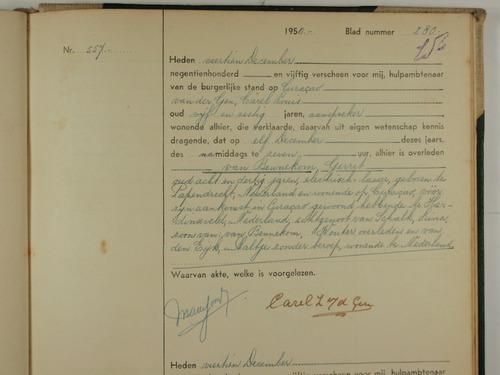 1950.- Blad nummer 280.
Nr. 557.-
Heden veertien December
negentienhonderd en vijftig verscheen voor mij, hulpambtenaar
van de burgerlijke stand op Curaçao
van der Gen, Carel Louis
oud vijf en zestig jaren, aanspreker
wonende alhier, die verklaarde, daarvan uit eigen wetenschap kennis
dragende, dat op elf December dezes jaars,
des na middags te zeven uur, alhier is overleden
van Bennekom, Gerrit
oud acht en dertig jaren, electrisch lasser, geboren te
Papendrecht, Nederland en wonende op Curaçao, vóór
zijn aankomst in Curaçao gewoond hebbende te Har-
dinxveld, Nederland, echtgenoot van Schalk, Dina,
zoon van: van Bennekom, Wouter overleden en van
den Eijk, Aaltje zonder beroep, wonende te Nederland.
Waarvan akte, welke is voorgelezen.
Carel L v/d Gen
Heden veertien December
negentienhonderd en vijftig verscheen voor mij, hulpambtenaar